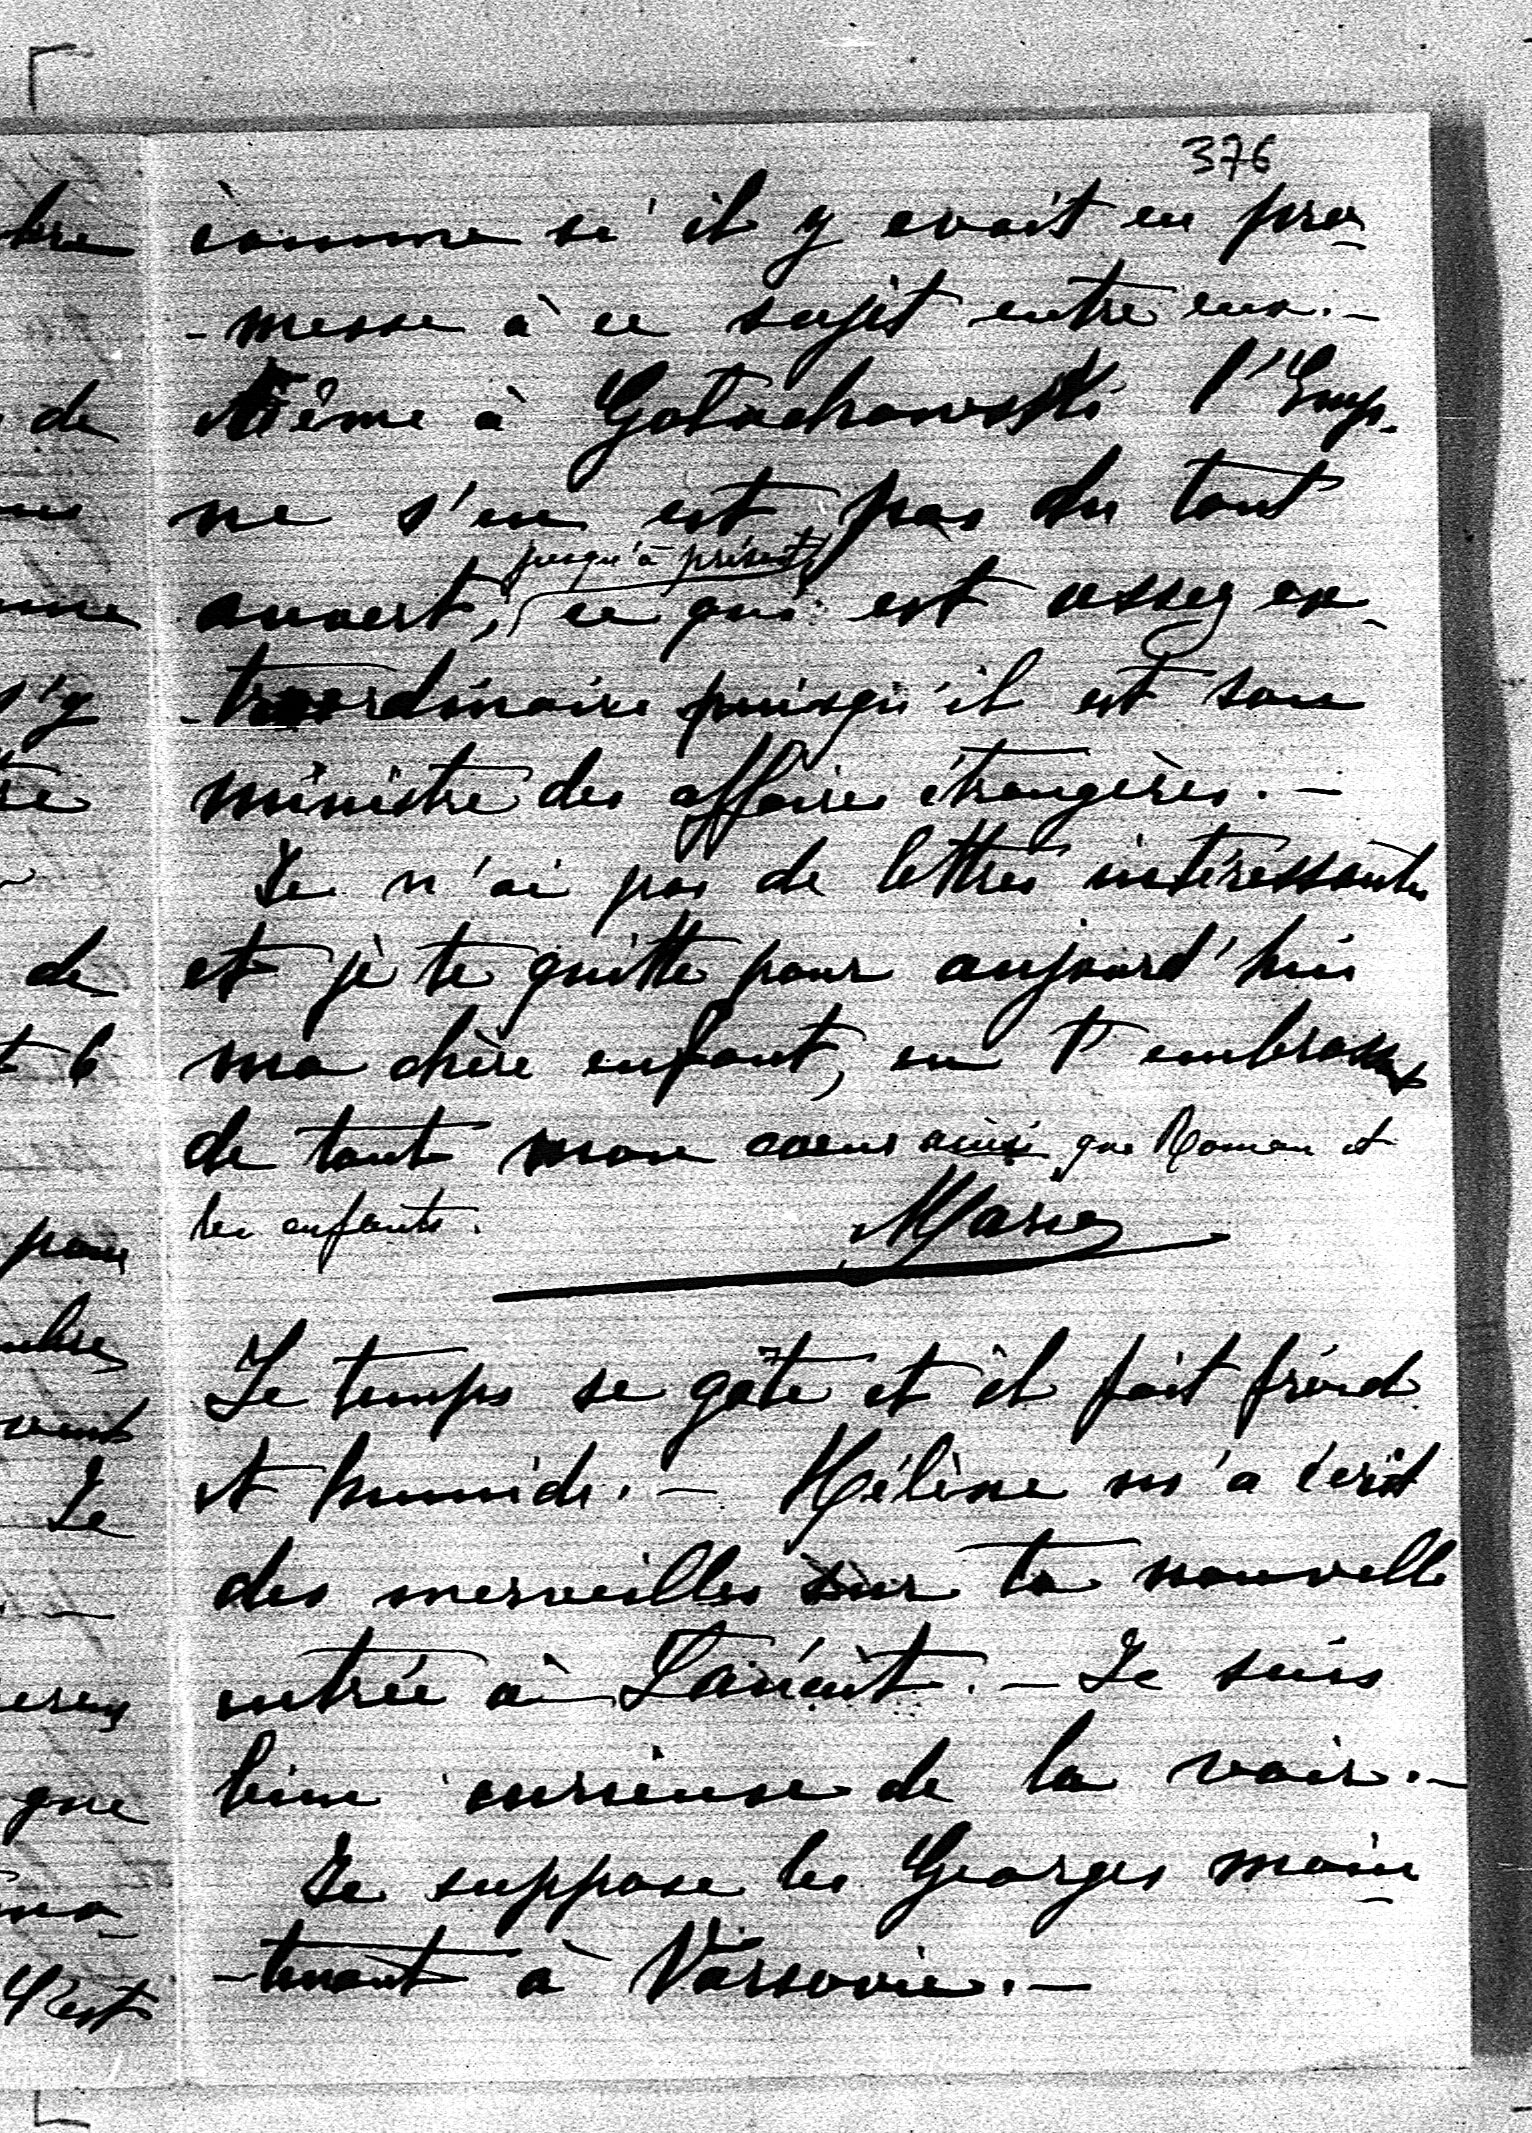 376
comme si il y avait eu pro-
-messe à ce sujet entre eux. -
Même à Goluchowski l'Emp.
ne s'en est pas du tout
jusqu'à présent
ouvert, ce qui est assez ex-
-traordinaire puisqu'il est son
ministre des affaires étrangères. -
Je n'ai pas de lettres intéressantes
et je te quitte pour aujourd'hui
ma chère enfant, en t'embrassant
de tout mon coeur ainsi que Roman et
les enfants.
Marie
Le temps se gâte et il fait froid
et humide. - Hélène m'a écrit
des merveilles sur ta nouvelle
entrée à Łańcut. - Je suis
bien curieuse de la voir. -
Je suppose les Georges main-
-tenant à Varsovie. -
de
s'y
de
pour
Je
que